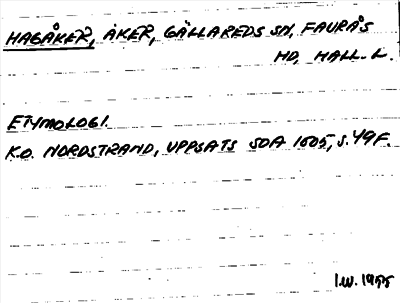 HAGÅKER, ÅKER, GÄLLAREDS SN, FAURÅS
HD, HALL. L.
ETYMOLOGI.
K.O. NORDSTRAND, UPPSATS SOA 1605, S. 49 F.
I.W. 1955